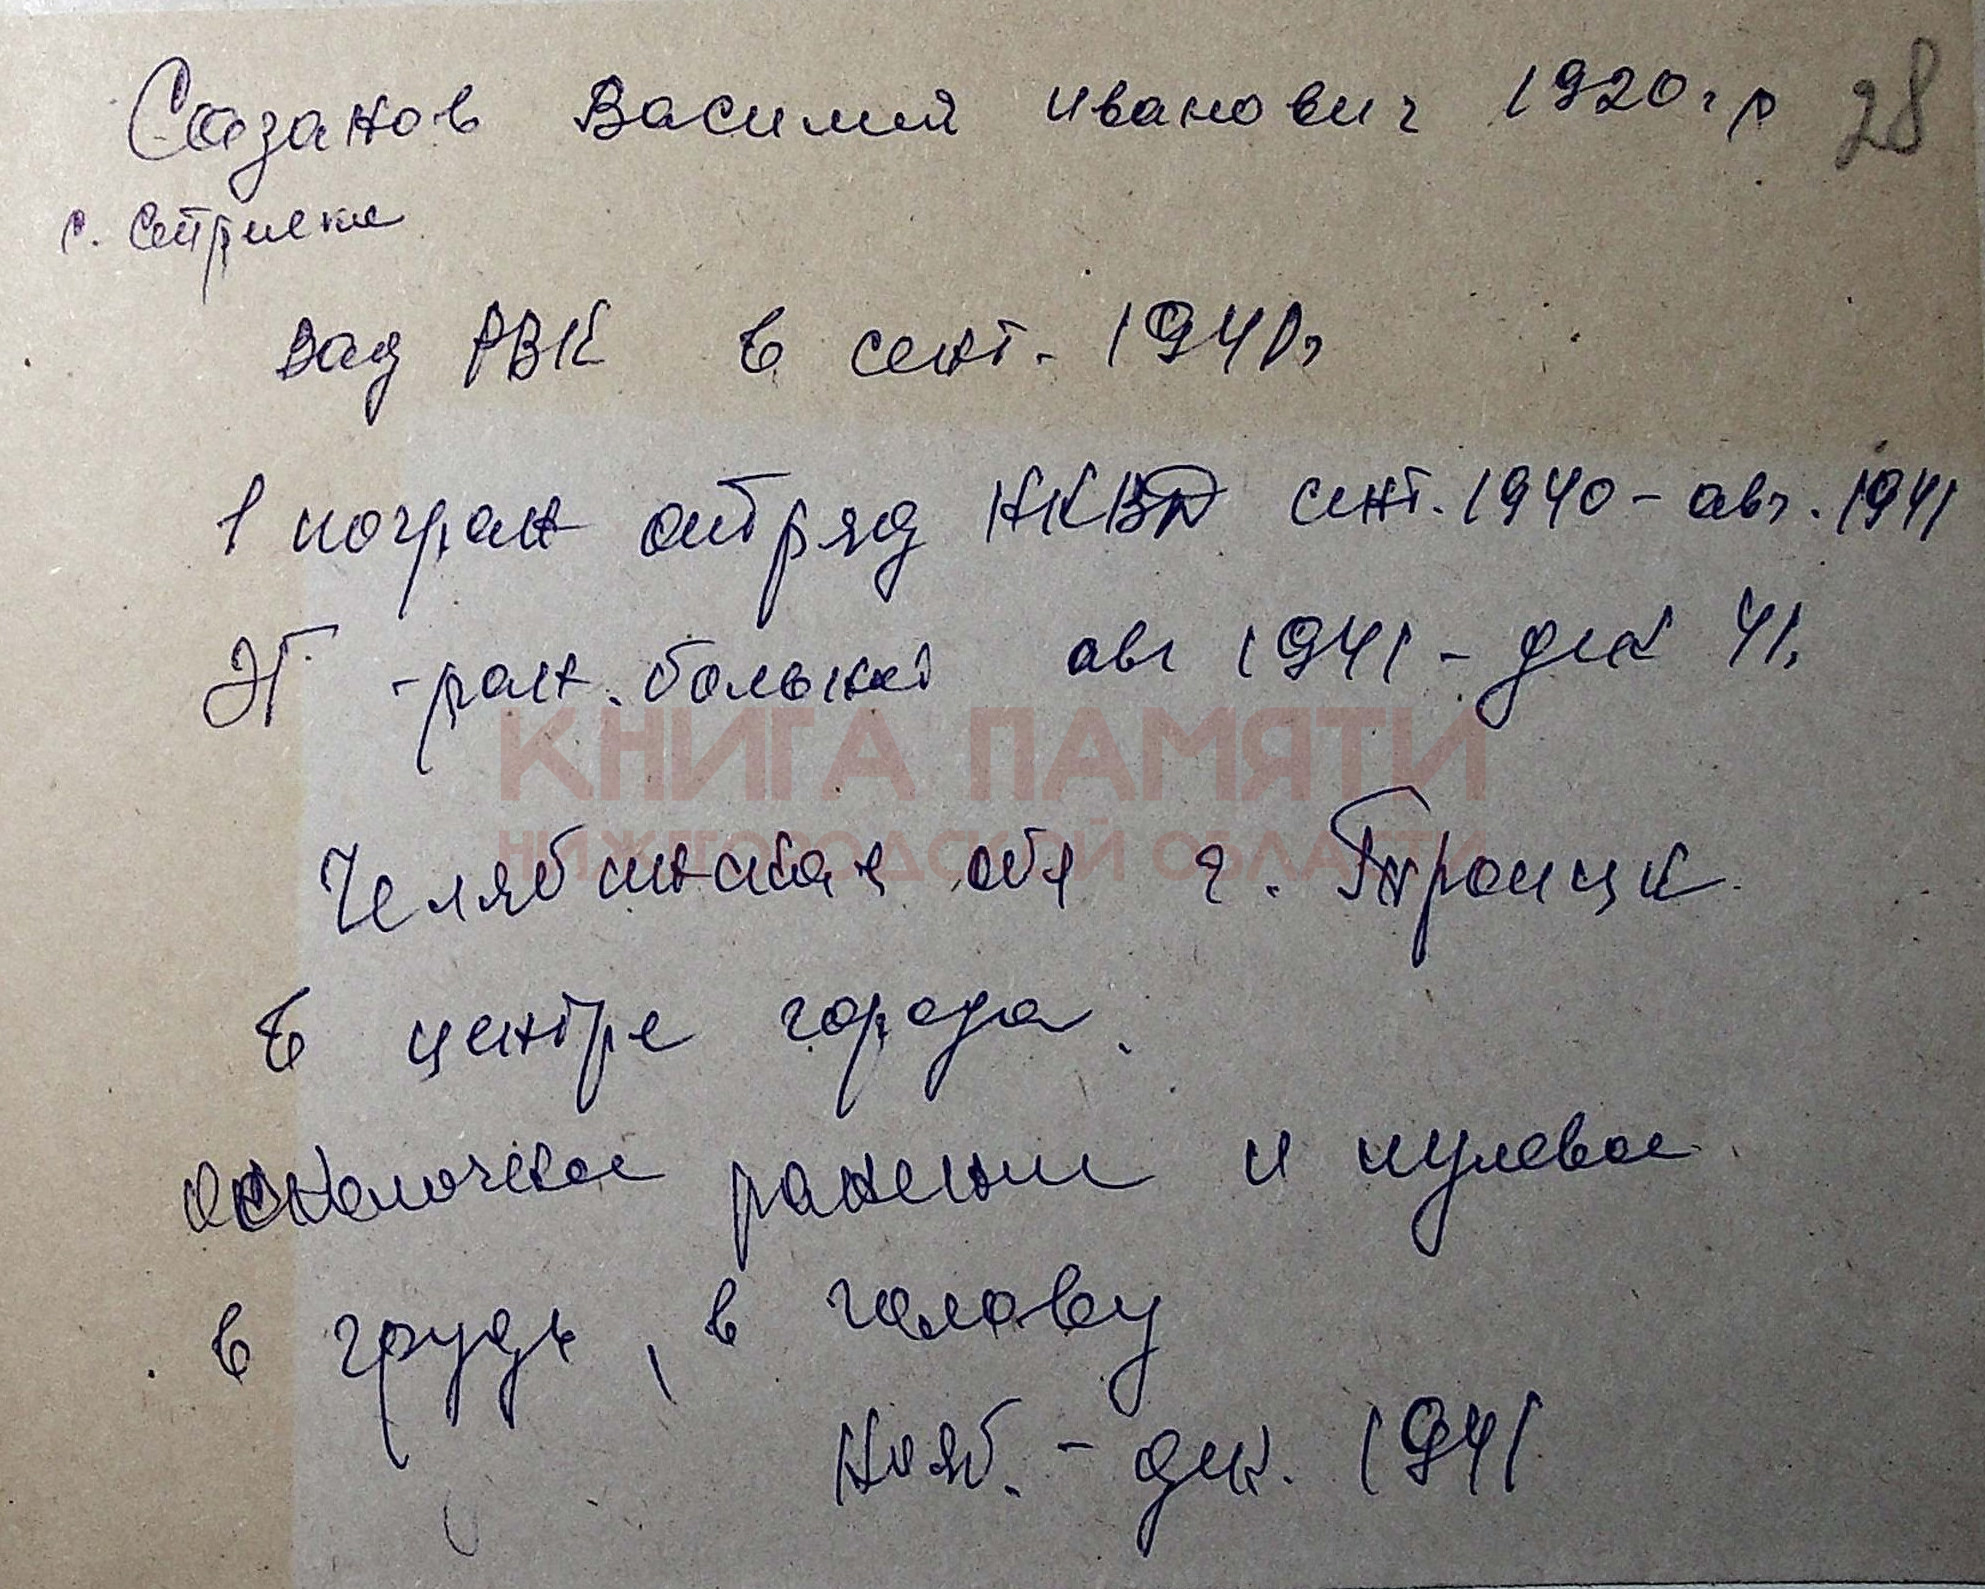 Сазанов Василий Иванович 1920 г р 28
с. Стрелка
Вад РВК в сент. 1940г
1 погран отряд НКВД сент. 1940 - авг. 1941
ЭГ - ран. больной авг 1941 - дек 41.
КНИГА ПАМЯТИ
НИЖЕГОРОДСКОЙ ОБЛАСТИ
Челябинская обл г. Троицк
в центре города.
осколочное ранение и пулевое
в грудь, в голову
Нояб. - дек. 1941